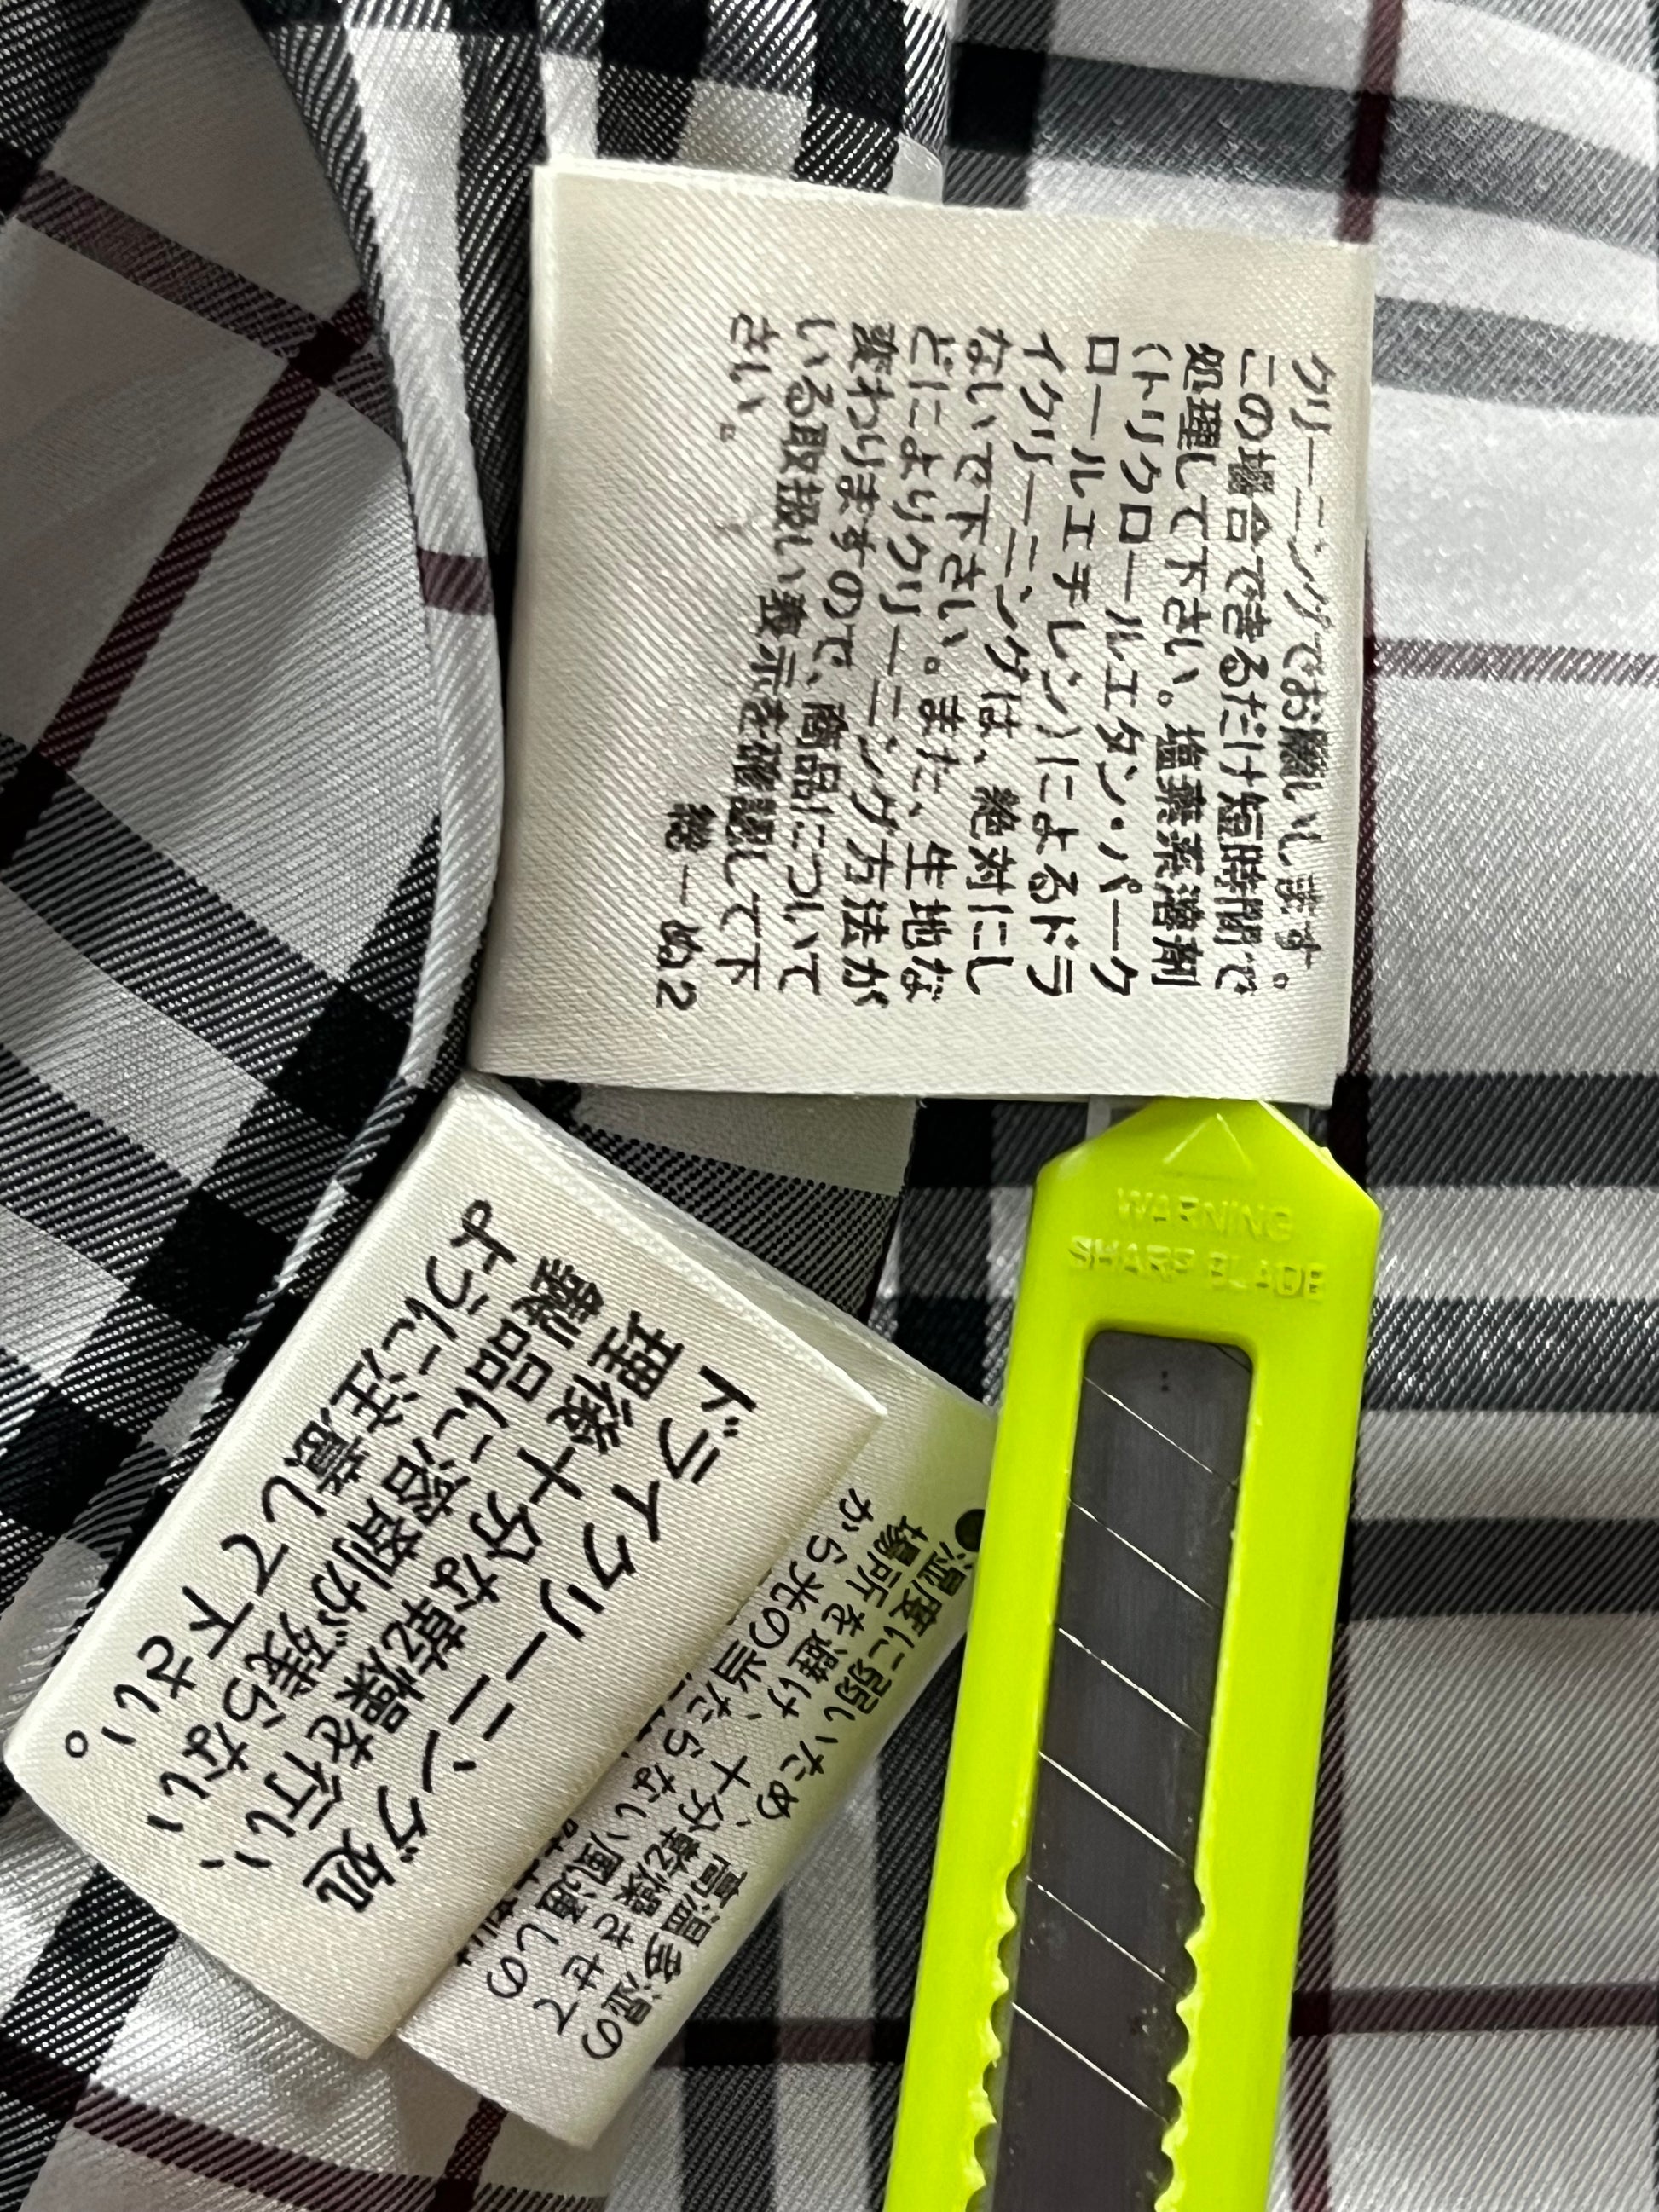 クリーニングでお願いします。
この場合できるだけ短時間で
処理して下さい。塩素系溶剤
(トリクロールエタン・パーク
ロールエチレン)によるドラ
イクリーニングは、絶対にし
ないで下さい。また、生地な
どによりクリーニング方法が
変わりますので、商品について
いる取扱い表示を確認して下
さい。
統一ぬ2
ドライクリーニング処
理後十分な乾燥を行い、
製品に溶剤が残らない
ように注意して下さい。
●湿度に弱いため、高温多湿の
場所を避け、十分乾燥させて
から光の当たらない風通しの
WARNING
SHARP BLADE